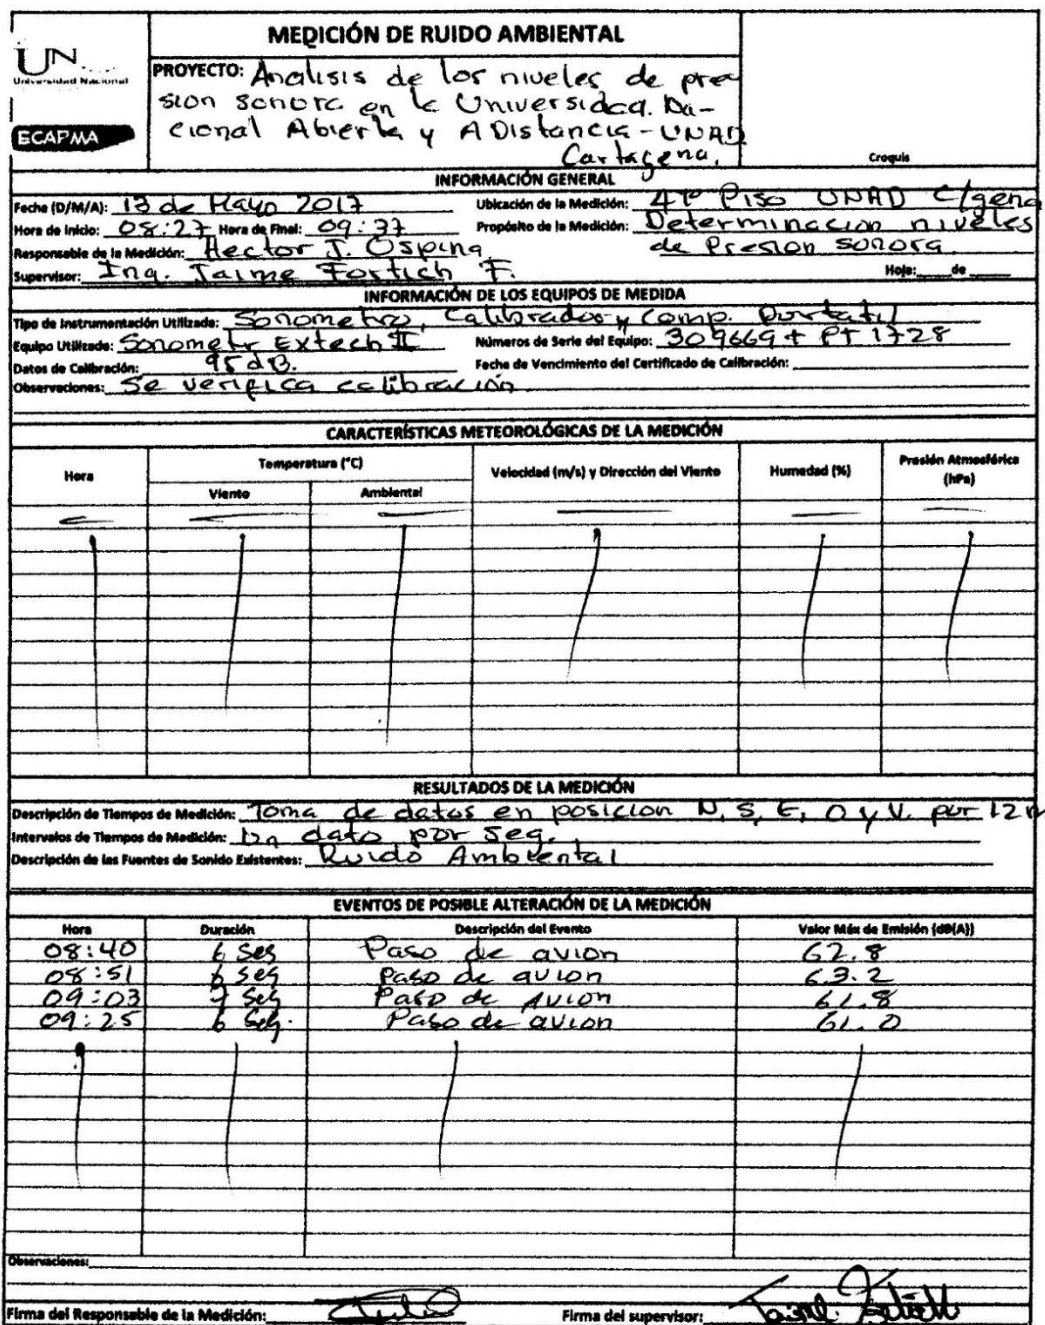 UN
Universidad Nacional
ECAPMA
MEDICIÓN DE RUIDO AMBIENTAL
PROYECTO: Analisis de los niveles de pre
sion sonora en la Universidad. Na-
cional Abierta y A Distancia - UNAD
Cartagena.
Croquis
INFORMACIÓN GENERAL
Fecha (D/M/A): 13 de Mayo 2017 Ubicación de la Medición: 4to Piso UNAD C/gena
Hora de Inicio: 08:27 Hora de Final: 09:37 Propósito de la Medición: Determinacion niveles
Responsable de la Medición: Hector J. Ospina de Presion sonora
Supervisor: Ing. Jaime Fortich F. Hoja: de
INFORMACIÓN DE LOS EQUIPOS DE MEDIDA
Tipo de Instrumentación Utilizada: Sonometro, Calibrador y Comp. Portatil
Equipo Utilizado: Sonometr Extech II Números de Serie del Equipo: 309669 + PT 1728
Datos de Calibración: 95 dB. Fecha de Vencimiento del Certificado de Calibración:
Observaciones: Se verifica calibración
CARACTERÍSTICAS METEOROLÓGICAS DE LA MEDICIÓN
Hora Temperatura (°C) Velocidad (m/s) y Dirección del Viento Humedad (%) Presión Atmosférica (hPa)
Viento Ambiental
RESULTADOS DE LA MEDICIÓN
Descripción de Tiempos de Medición: Toma de datos en posicion N, S, E, O y V. por 12 m
Intervalos de Tiempos de Medición: Un dato por seg.
Descripción de las Fuentes de Sonido Existentes: Ruido Ambiental
EVENTOS DE POSIBLE ALTERACIÓN DE LA MEDICIÓN
Hora Duración Descripción del Evento Valor Máx de Emisión (dB(A))
08:40 6 Seg Paso de avion 62.8
08:51 6 Seg Paso de avion 63.2
09:03 7 Seg Paso de Avion 61.8
09:25 6 Seg. Paso de avion 61.0
Observaciones:
Firma del Responsable de la Medición: Firma del supervisor: